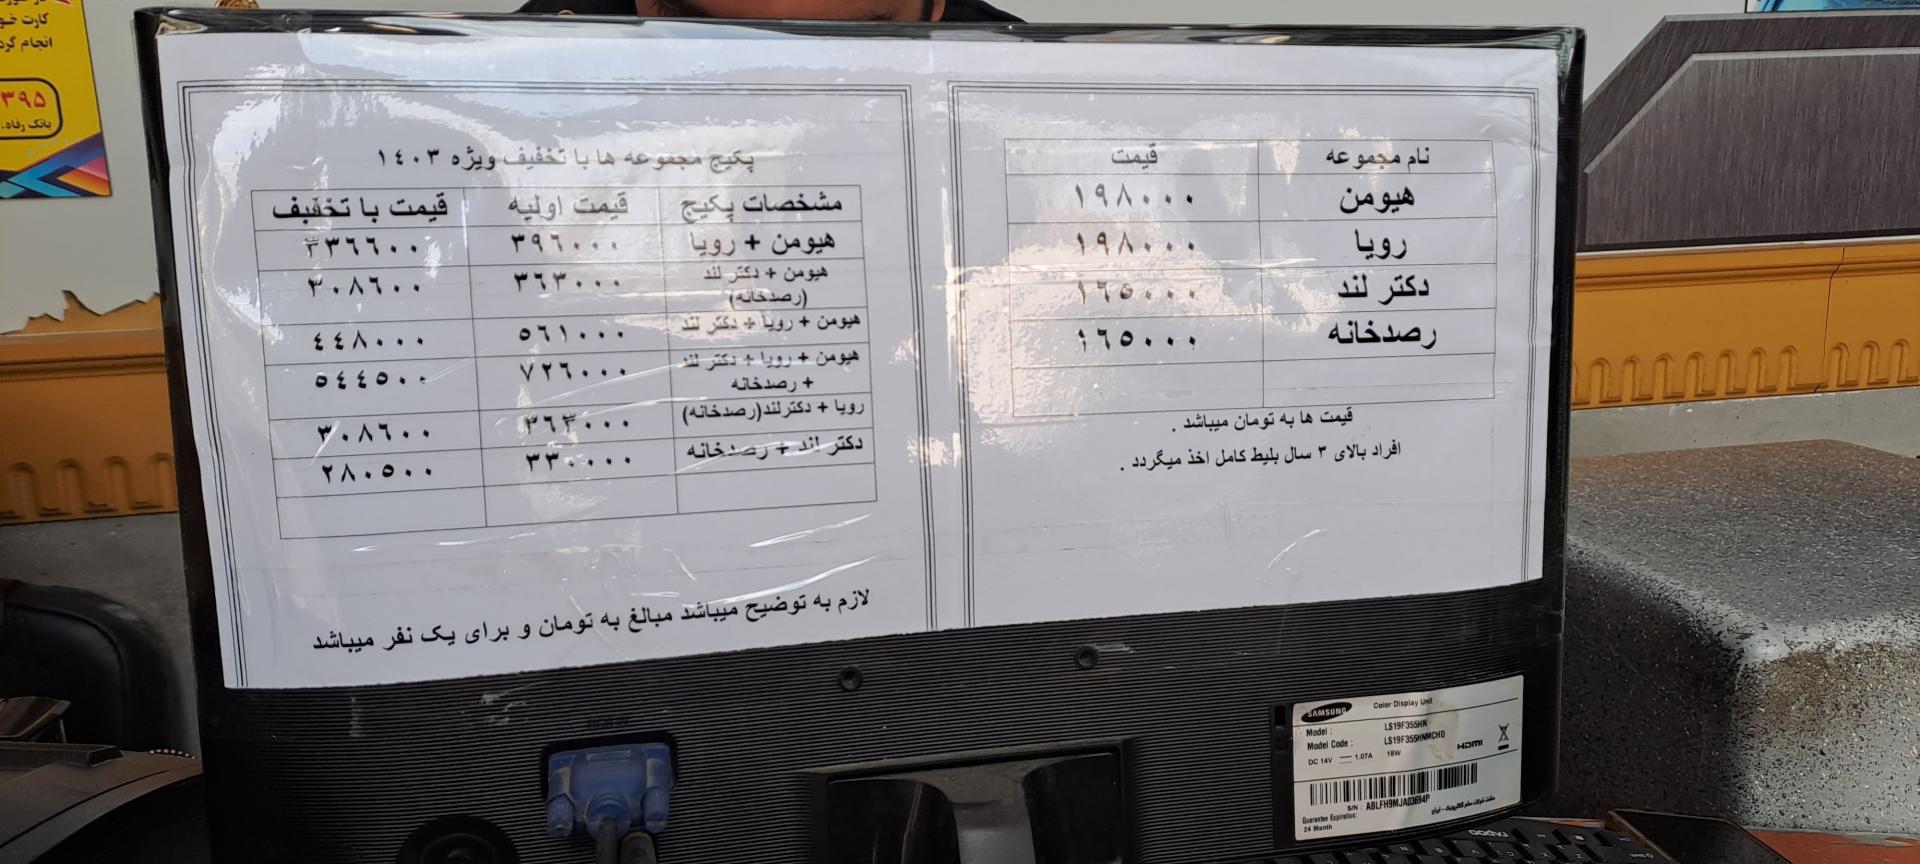 کارت خو
انجام گرد
۳۹۵
بانک رفاه.
نام مجموعه قیمت
هیومن ۱۹۸۰۰۰
رویا ۱۹۸۰۰۰
دکتر لند ۱٦٥۰۰۰
رصدخانه ۱٦٥۰۰۰
قیمت ها به تومان میباشد .
افراد بالای ۳ سال بلیط کامل اخذ میگردد .
پکیج مجموعه ها با تخفیف ویژه ۱٤۰۳
مشخصات پکیج قیمت اولیه قیمت با تخفیف
هیومن + رویا ۳۹٦۰۰۰ ۳۳٦٦۰۰
هیومن + دکتر لند ۳٦۳۰۰۰ ۳۰۸٦۰۰
(رصدخانه)
هیومن + رویا + دکتر لند ٥٦۱۰۰۰ ٤٤۸۰۰۰
هیومن + رویا + دکتر لند ۷۲٦۰۰۰ ٥٤٤٥۰۰
+ رصدخانه
رویا + دکترلند(رصدخانه) ۳٦۳۰۰۰ ۳۰۸٦۰۰
دکتر لند + رصدخانه ۳۳۰۰۰۰ ۲۸۰٥۰۰
لازم به توضیح میباشد مبالغ به تومان و برای یک نفر میباشد
SAMSUNG Color Display Unit
Model : LS19F355HN
Model Code : LS19F355HNMCHD
DC 14V 1.07A 15W HDMI
S/N : ABLFH9MJA03694P
Guarantee Expiration:
24 Month
rapoo